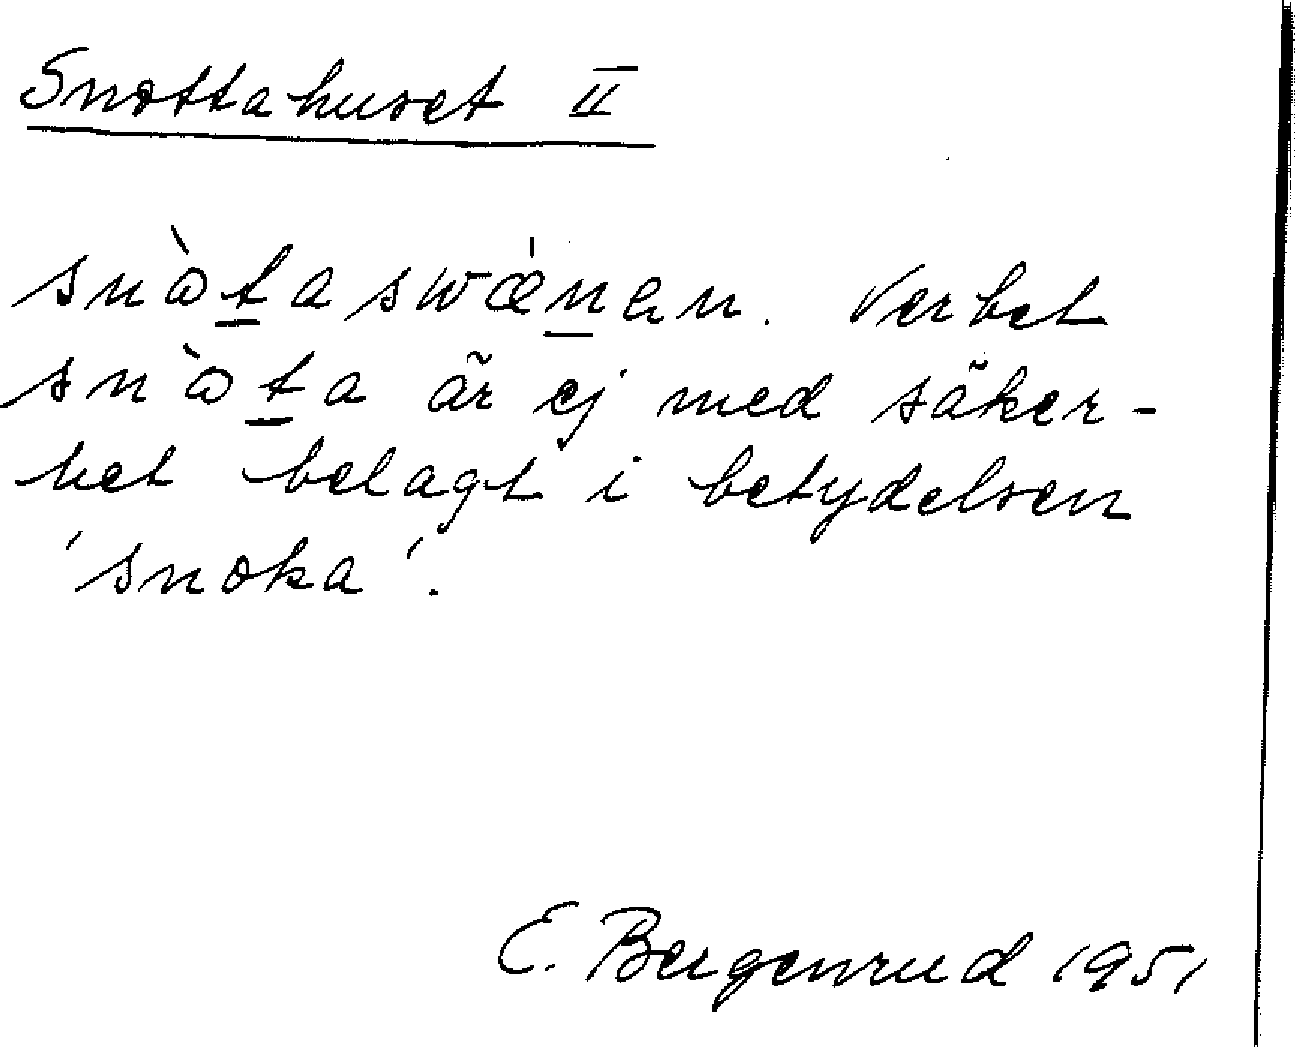 Snottahuset II
snɷ̀t̲aswǽn̲ɐn. Verbet
snɷ̀t̲a är ej med säker-
het belagt i betydelsen
'snoka'.
E. Bergenrud 1951